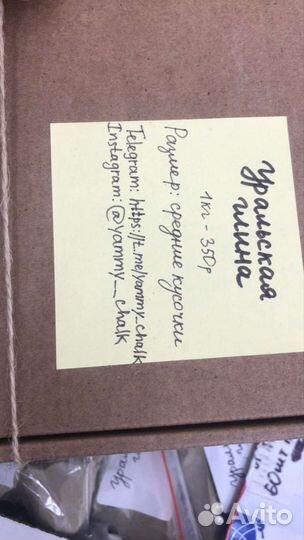 Уральская
глина
1кг - 350р
Размер: средние кусочки
Telegram: https://t.me/yammy_chalk
Instagram: @yammy__chalk
60шт
Avito